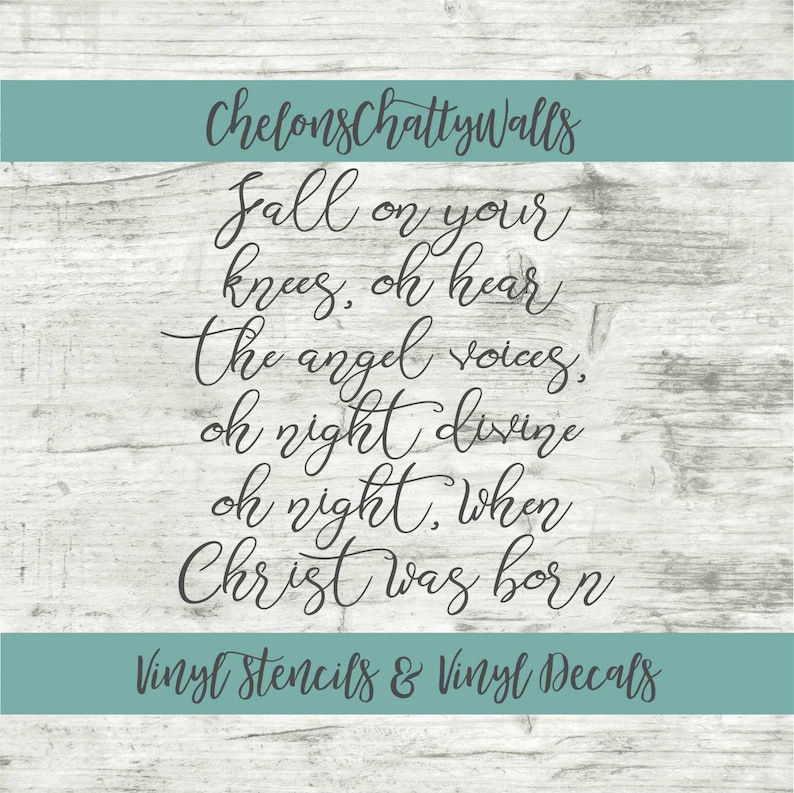 ChelonsChattyWalls
Fall on your
knees, oh hear
the angel voices,
oh night divine
oh night, when
Christ was born
Vinyl Stencils & Vinyl Decals